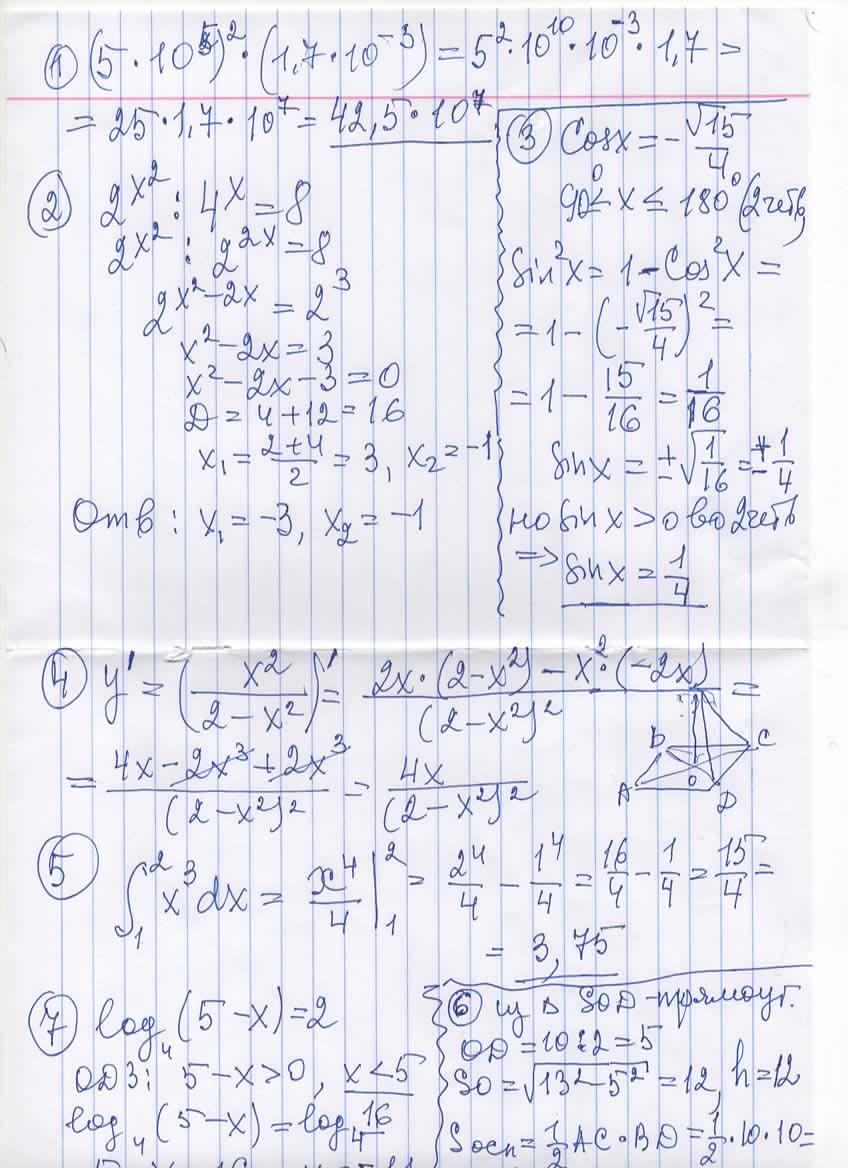 ① (5 · 10⁵)² · (1,7 · 10⁻³) = 5² · 10¹⁰ · 10⁻³ · 1,7 =
= 25 · 1,7 · 10⁷ = 42,5 · 10⁷
② 2^(x²) : 4^x = 8
2^(x²) : 2^(2x) = 8
2^(x²-2x) = 2³
x² - 2x = 3
x² - 2x - 3 = 0
D = 4 + 12 = 16
x₁ = (2+4)/2 = 3, x₂ = -1
Отв: x₁ = -3, x₂ = -1
③ Cosx = -√15/4
90° ≤ x ≤ 180° (2четв)
Sin²x = 1 - Cos²x =
= 1 - (-√15/4)² =
= 1 - 15/16 = 1/16
Sinx = ±√(1/16) = ±1/4
но Sinx > 0 во 2четв
=> Sinx = 1/4
④ y' = (x²/(2-x²))' = (2x · (2-x²) - x² · (-2x))/(2-x²)² =
= (4x - 2x³ + 2x³)/(2-x²)² = 4x/(2-x²)²
B C
A O D
⑤ ∫₁² x³dx = x⁴/4 |₁² = 2⁴/4 - 1⁴/4 = 16/4 - 1/4 = 15/4 =
= 3,75
⑦ log₄(5-x) = 2
ОДЗ: 5-x > 0, x < 5
log₄(5-x) = log₄16
⑥ из Δ SOD - прямоуг.
OD = 10:2 = 5
SO = √(13²-5²) = 12, h = 12
Sосн = 1/2 AC · BD = 1/2 · 10 · 10 =